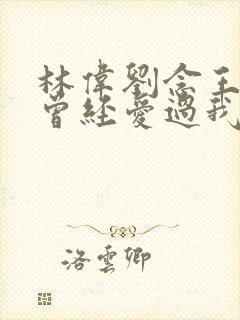 林偉劉念王
曾經愛過我
洛雲卿